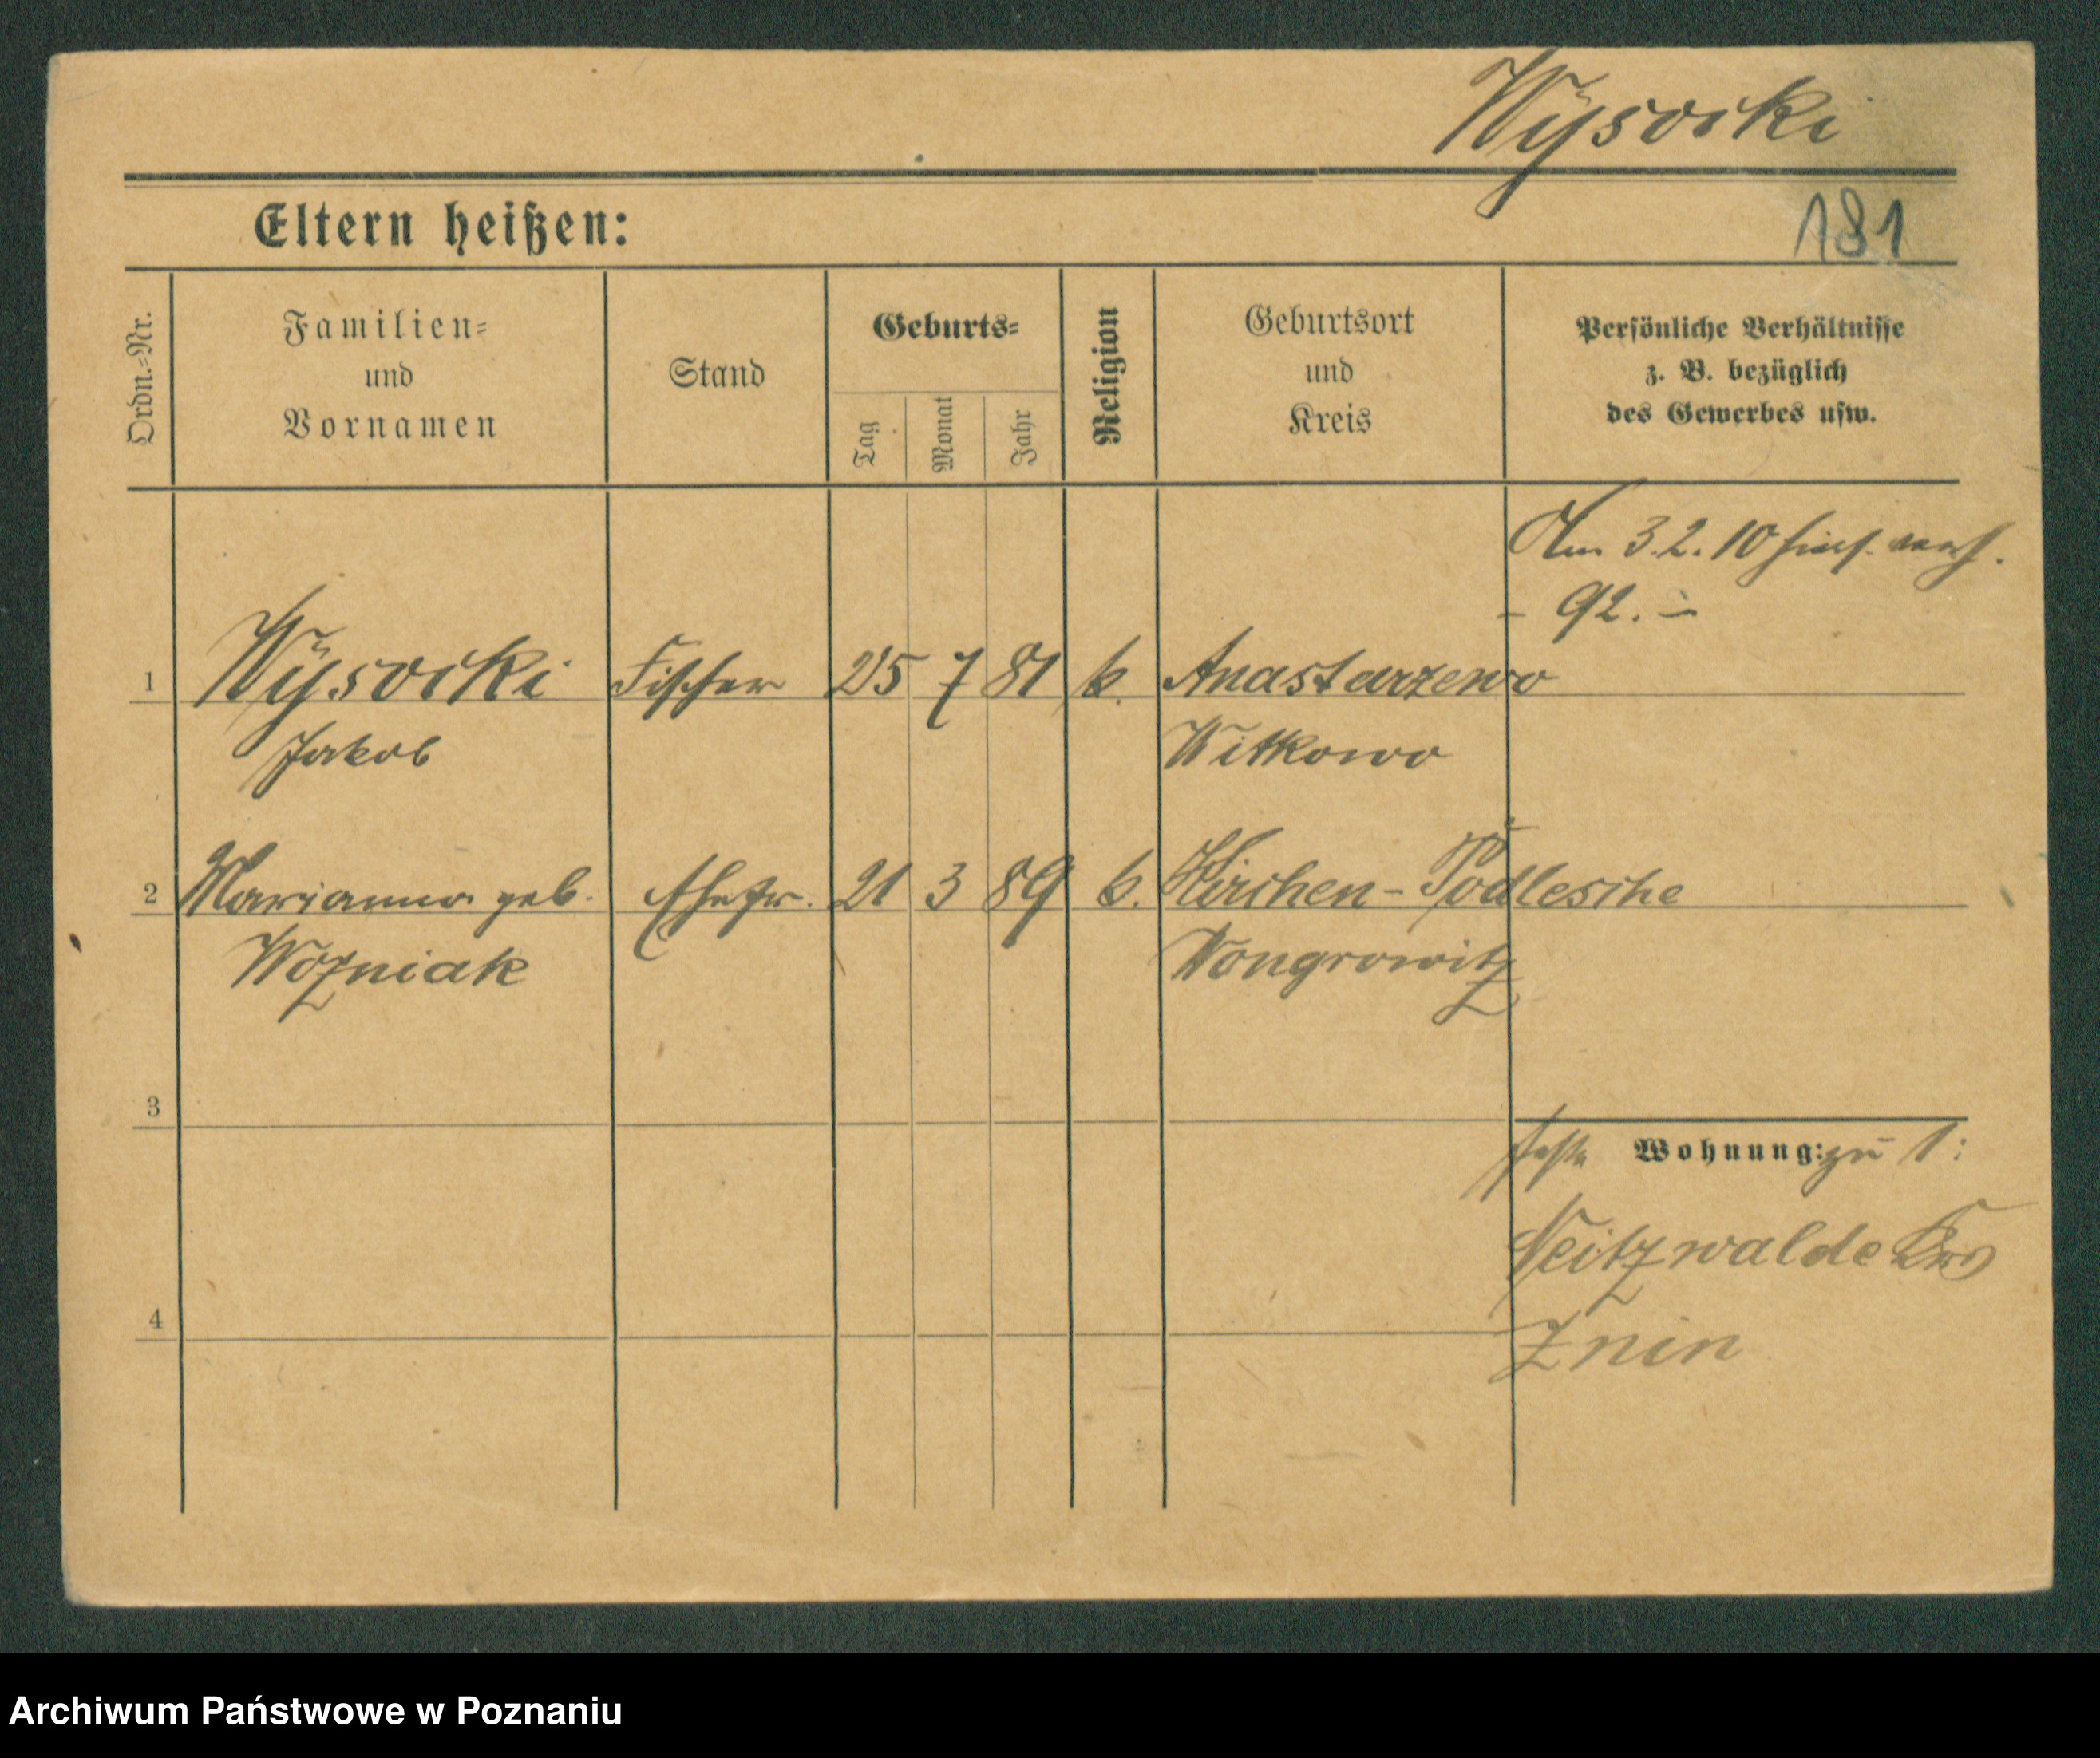 Wysocki
Eltern heißen:
181
Ordn.-Nr.
Familien-
und
Vornamen
Stand
Geburts-
Tag
Monat
Jahr
Religion
Geburtsort
und
Kreis
Persönliche Verhältnisse
z. B. bezüglich
des Gewerbes usw.
Am 3.2.10 verh.
- 92. -
1 Wysocki Fischer 25 7 81 k. Anastazewo
Jakob Witkowo
2 Marianna geb. Ehefr. 21 3 89 k. Kirchen-Podlesche
Wozniak Wongrowitz
3
feste Wohnung: zu 1:
Seitzwalde Krs
4
Znin
Archiwum Państwowe w Poznaniu